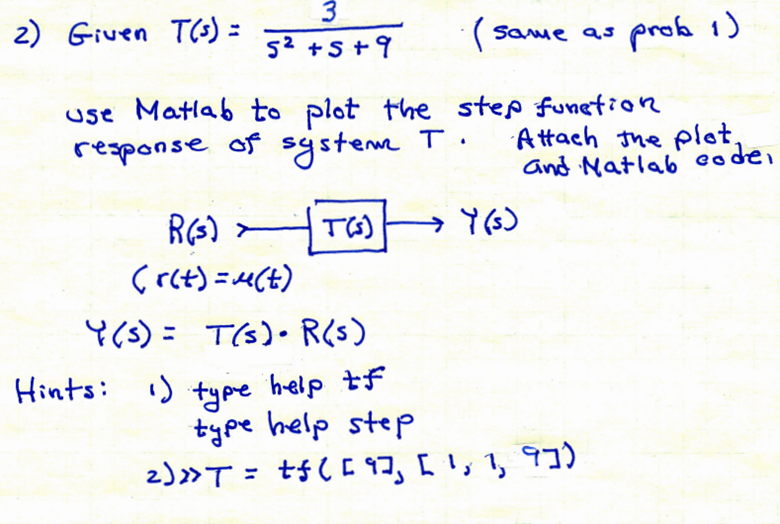 2) Given T(s) = 3 / (s² + s + 9) (same as prob 1)
use Matlab to plot the step function
response of system T. Attach the plot,
and Matlab code.
R(s) → T(s) → Y(s)
(r(t) = u(t)
Y(s) = T(s) · R(s)
Hints: 1) type help tf
type help step
2) >> T = tf([9], [1, 1, 9])